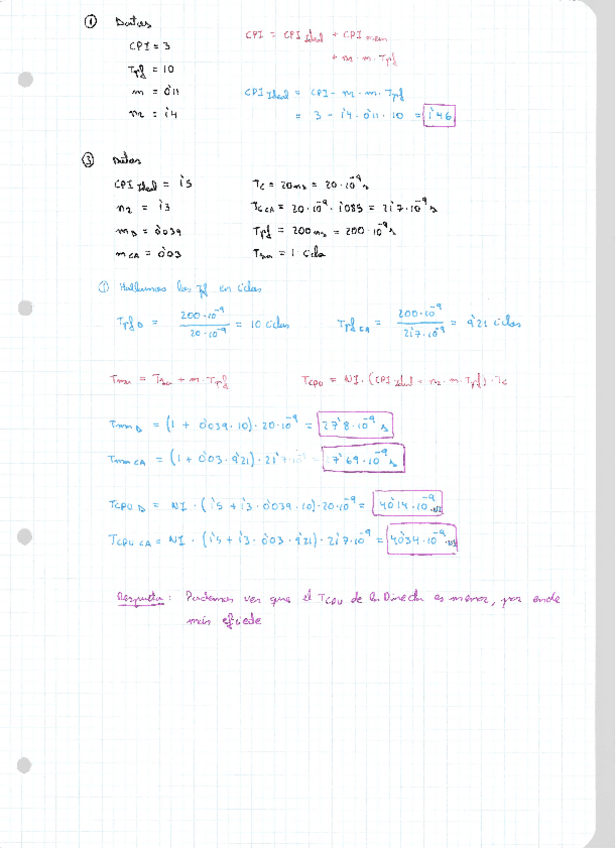 ① Datos
CPI = CPI Ideal + CPI mem
CPI = 3
+ n · m · Tpf
Tpf = 10
m = 0'11
CPI Ideal = CPI - n · m · Tpf
n = 1'4
= 3 - 1'4 · 0'11 · 10 = 1'46
③ Datos
CPI Ideal = 1'5
Tc = 20 ns = 20 · 10⁻⁹ s
n = 1'3
Tc CA = 20 · 10⁻⁹ · 1'085 = 21'7 · 10⁻⁹ s
m D = 0'039
Tpf = 200 ns = 200 · 10⁻⁹ s
m CA = 0'03
Tsa = 1 ciclo
① Hallamos los Tpf en ciclos
Tpf D = 200 · 10⁻⁹ / 20 · 10⁻⁹ = 10 ciclos
Tpf CA = 200 · 10⁻⁹ / 21'7 · 10⁻⁹ = 9'21 ciclos
Tma = Tsa + m · Tpf
TCPU = NI · (CPI Ideal + n · m · Tpf) · Tc
Tma D = (1 + 0'039 · 10) · 20 · 10⁻⁹ = 27'8 · 10⁻⁹ s
Tma CA = (1 + 0'03 · 9'21) · 21'7 · 10⁻⁹ = 27'69 · 10⁻⁹ s
TCPU D = NI · (1'5 + 1'3 · 0'039 · 10) · 20 · 10⁻⁹ = 40'14 · 10⁻⁹ · NI
TCPU CA = NI · (1'5 + 1'3 · 0'03 · 9'21) · 21'7 · 10⁻⁹ = 40'34 · 10⁻⁹ · NI
Respuesta : Podemos ver que el TCPU de la Directa es menor, por ende
más eficiente